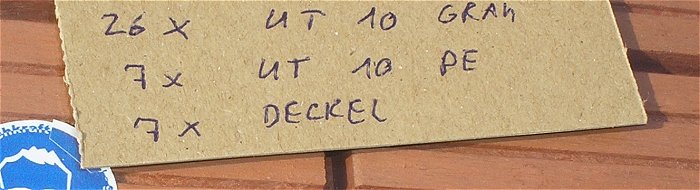 26 x UT 10 GRAU
7 x UT 10 PE
7 x DECKEL